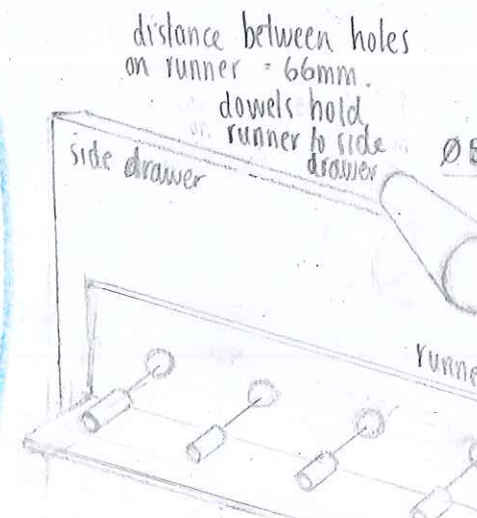 distance between holes
on runner = 66mm.
dowels hold
runner to side
drawer
side drawer
Ø